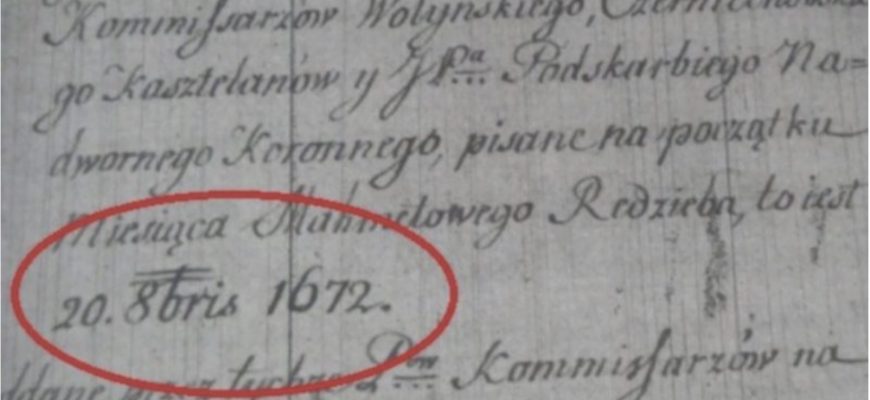 Kommissarzów Wołyńskiego,
go Kasztelanów y JPna Podskarbiego Na=
dwornego Koronnego, pisane na początku
miesiąca Mahmetowego Redzieba, to iest
20. 8bris 1672.
przez tychże Pow Kommissarzów na